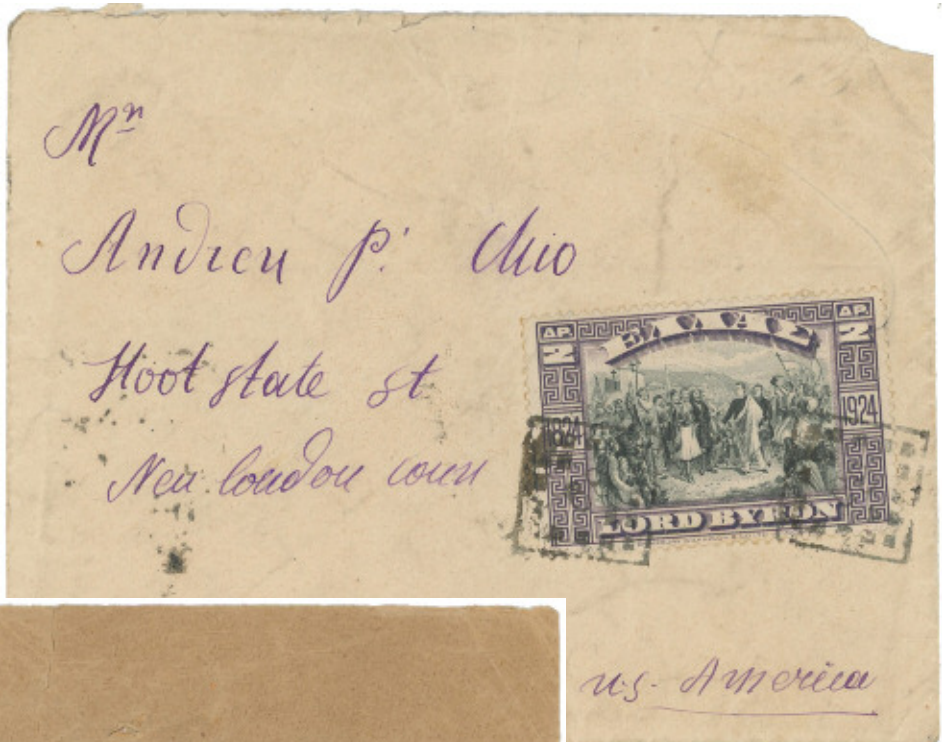 Mr
Andrew P. Chio
Hoot state st
New london conn
ΑΡ. 2 ΕΛΛΑΣ ΑΡ. 2
1824 1924
LORD BYRON
U.S. America